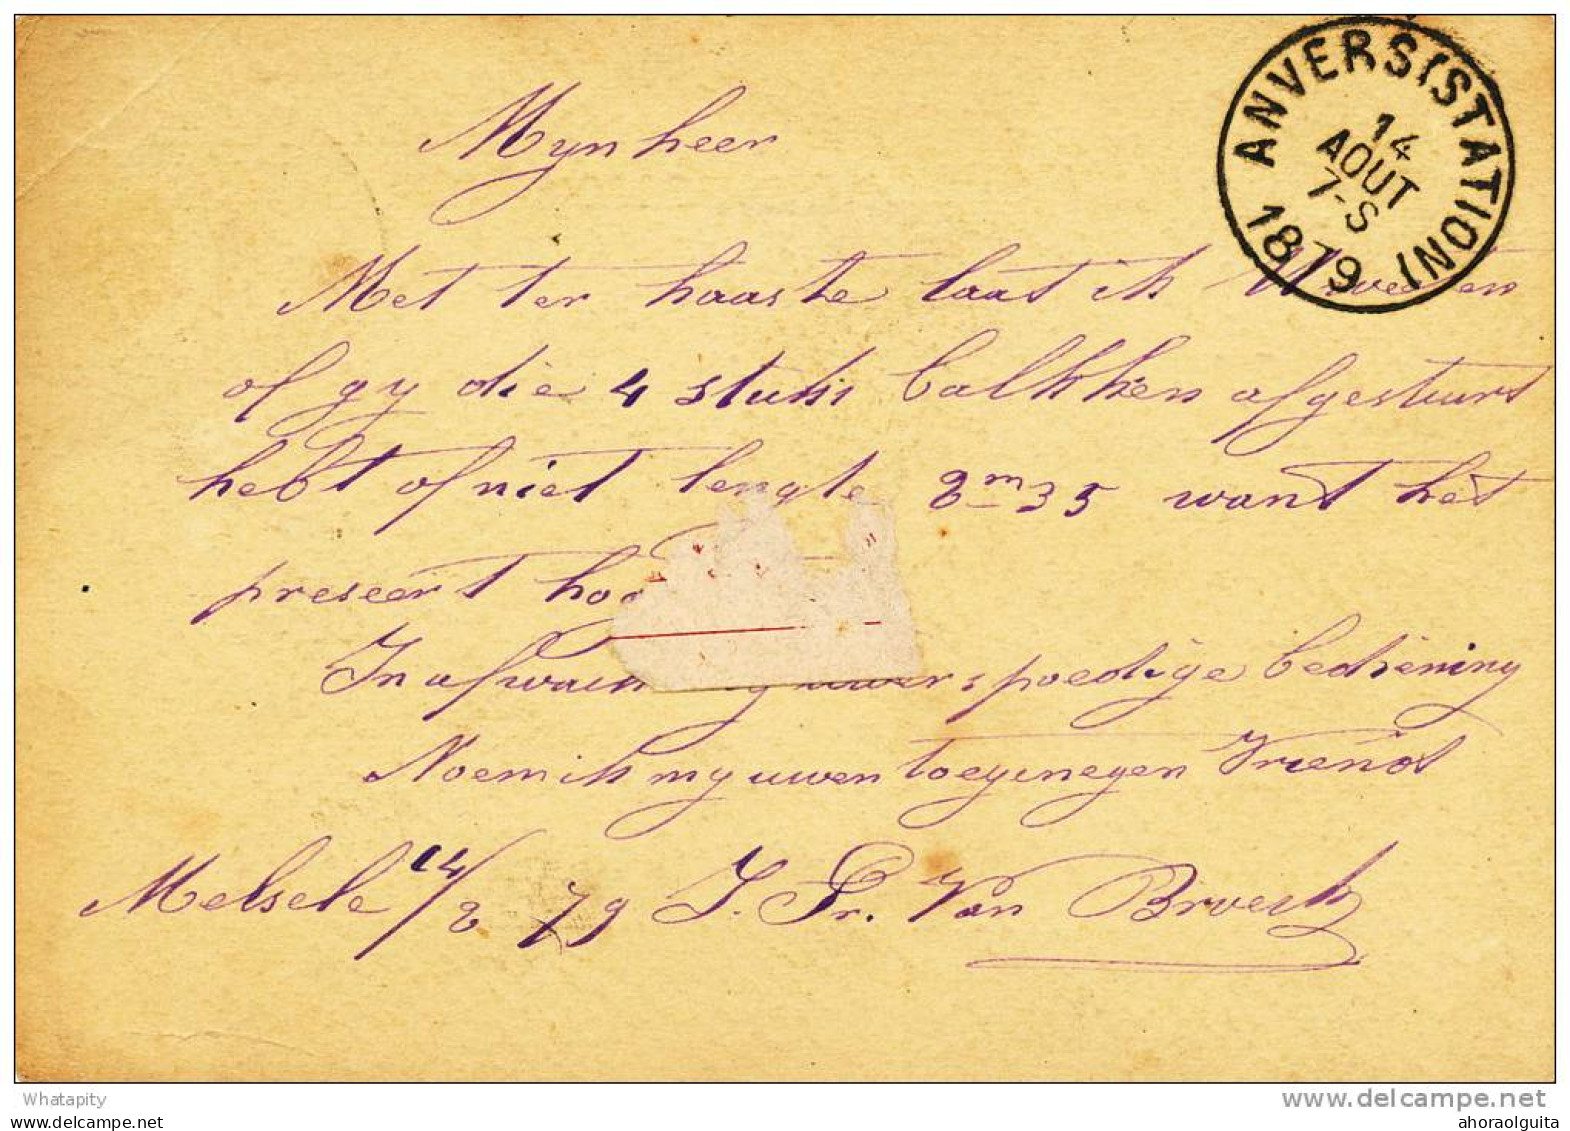 ANVERS (STATION)
14
AOUT
7-S
1879
Mynheer
Met ter haaste laat ik U weeten
of gy die 4 stuks balkken afgestuurt
hebt of niet lengte 8m35 want het
preseert
In uwer spoedige bediening
Noem ik my uwen toegenegen Vriend
Melsele 14/8 79 J. Fr. Van Broeck
Whatapity
www.delcampe.net
whatapity.delcampe.net
ahoraolguita